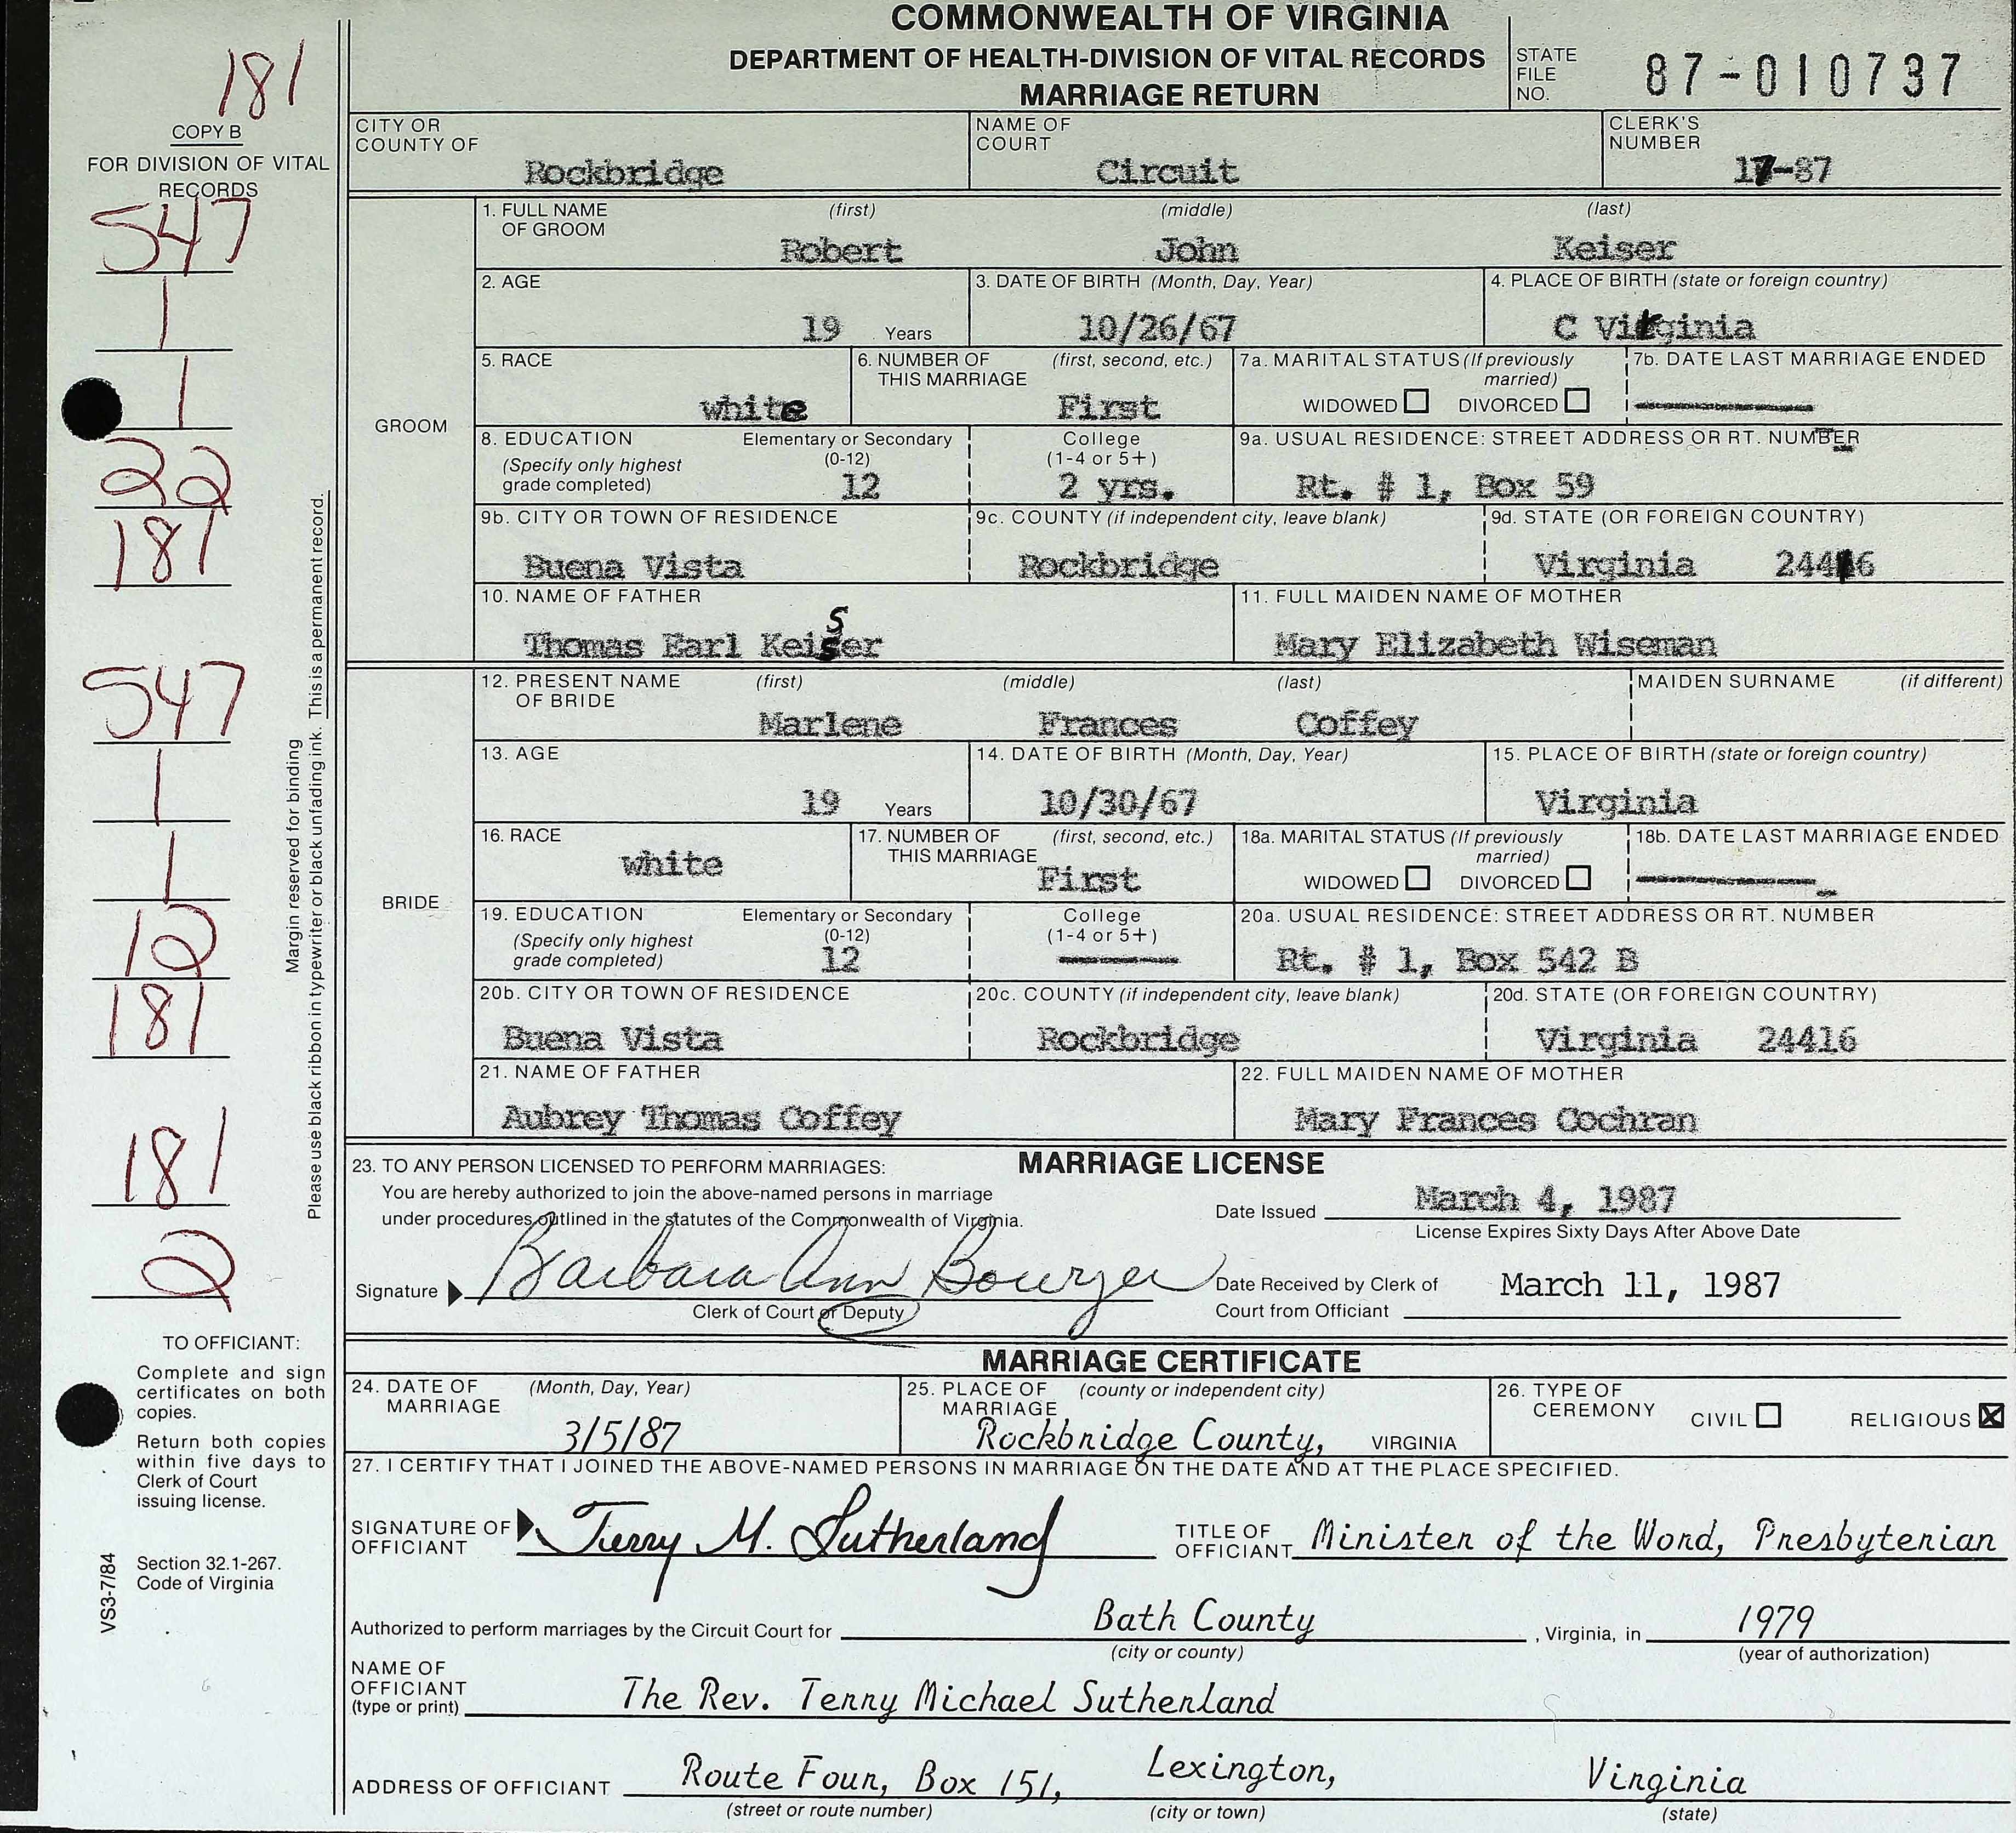 COMMONWEALTH OF VIRGINIA
DEPARTMENT OF HEALTH-DIVISION OF VITAL RECORDS
MARRIAGE RETURN
STATE FILE NO. 87-010737
181
COPY B
FOR DIVISION OF VITAL RECORDS
547
1
1
22
181
547
1
1
12
181
181
2
Margin reserved for binding
Please use black ribbon in typewriter or black unfading ink. This is a permanent record.
TO OFFICIANT:
Complete and sign
certificates on both
copies.
Return both copies
within five days to
Clerk of Court
issuing license.
Section 32.1-267.
Code of Virginia
VS3-7/84
CITY OR COUNTY OF Rockbridge
NAME OF COURT Circuit
CLERK'S NUMBER 17-87
GROOM
1. FULL NAME OF GROOM (first) Robert (middle) John (last) Keiser
2. AGE 19 Years
3. DATE OF BIRTH (Month, Day, Year) 10/26/67
4. PLACE OF BIRTH (state or foreign country) C Virginia
5. RACE white
6. NUMBER OF THIS MARRIAGE (first, second, etc.) First
7a. MARITAL STATUS (If previously married) WIDOWED DIVORCED
7b. DATE LAST MARRIAGE ENDED
8. EDUCATION (Specify only highest grade completed) Elementary or Secondary (0-12) 12
College (1-4 or 5+) 2 yrs.
9a. USUAL RESIDENCE: STREET ADDRESS OR RT. NUMBER Rt. # 1, Box 59
9b. CITY OR TOWN OF RESIDENCE Buena Vista
9c. COUNTY (if independent city, leave blank) Rockbridge
9d. STATE (OR FOREIGN COUNTRY) Virginia 24416
10. NAME OF FATHER Thomas Earl Keiser
S
11. FULL MAIDEN NAME OF MOTHER Mary Elizabeth Wiseman
BRIDE
12. PRESENT NAME OF BRIDE (first) Marlene (middle) Frances (last) Coffey
MAIDEN SURNAME (if different)
13. AGE 19 Years
14. DATE OF BIRTH (Month, Day, Year) 10/30/67
15. PLACE OF BIRTH (state or foreign country) Virginia
16. RACE white
17. NUMBER OF THIS MARRIAGE (first, second, etc.) First
18a. MARITAL STATUS (If previously married) WIDOWED DIVORCED
18b. DATE LAST MARRIAGE ENDED
19. EDUCATION (Specify only highest grade completed) Elementary or Secondary (0-12) 12
College (1-4 or 5+)
20a. USUAL RESIDENCE: STREET ADDRESS OR RT. NUMBER Rt. # 1, Box 542 B
20b. CITY OR TOWN OF RESIDENCE Buena Vista
20c. COUNTY (if independent city, leave blank) Rockbridge
20d. STATE (OR FOREIGN COUNTRY) Virginia 24416
21. NAME OF FATHER Aubrey Thomas Coffey
22. FULL MAIDEN NAME OF MOTHER Mary Frances Cochran
MARRIAGE LICENSE
23. TO ANY PERSON LICENSED TO PERFORM MARRIAGES:
You are hereby authorized to join the above-named persons in marriage
under procedures outlined in the statutes of the Commonwealth of Virginia.
Date Issued March 4, 1987
License Expires Sixty Days After Above Date
Signature Barbara Ann
Clerk of Court or Deputy
Date Received by Clerk of Court from Officiant March 11, 1987
MARRIAGE CERTIFICATE
24. DATE OF MARRIAGE (Month, Day, Year) 3/5/87
25. PLACE OF MARRIAGE (county or independent city) Rockbridge County, VIRGINIA
26. TYPE OF CEREMONY CIVIL RELIGIOUS X
27. I CERTIFY THAT I JOINED THE ABOVE-NAMED PERSONS IN MARRIAGE ON THE DATE AND AT THE PLACE SPECIFIED.
SIGNATURE OF OFFICIANT Terry M. Sutherland
TITLE OF OFFICIANT Minister of the Word, Presbyterian
Authorized to perform marriages by the Circuit Court for Bath County , Virginia, in 1979
(city or county) (year of authorization)
NAME OF OFFICIANT (type or print) The Rev. Terry Michael Sutherland
ADDRESS OF OFFICIANT Route Four, Box 151, Lexington, Virginia
(street or route number) (city or town) (state)